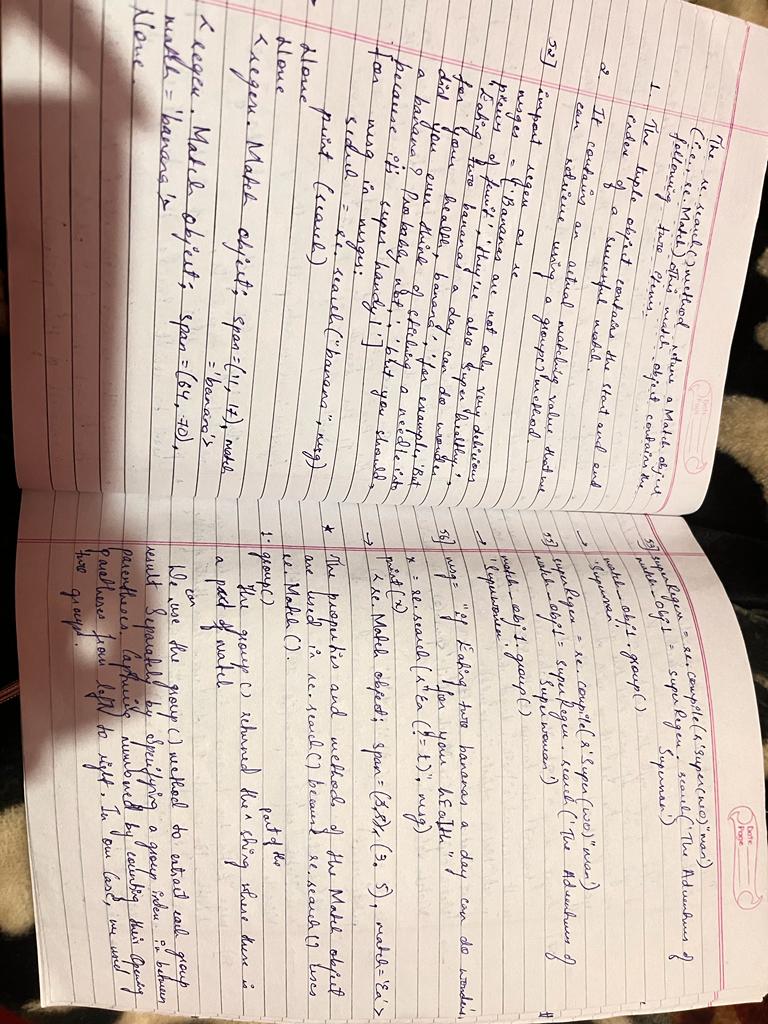 The re.search() method return a Match object
(i.e., re.Match). This match object contains the
following two items.
1. The tuple object contains the start and end
index of a successful match.
2. It contains an actual matching value that we
can retrieve using a group() method.
52] import regex as re
msges = ['Bananas are not only very delicious
piece of fruit', 'they're also super healthy',
'Eating two bananas a day can do wonders
for your health, banana', 'for example, But
did you ever think of sticking a needle into
a banana? Probably not', 'but you should,
because it's super handy!']
for msg in msges:
search = re.search("banana", msg)
print (search)
None
None
<regex.Match object; span=(11, 17), match
='banana'>
<regex.Match object; span=(64, 70),
match='banana'>
None.
Date
Page
53] superRegex = re.compile(r'Super(wo)*man')
match_Obj1 = superRegex.search('The Adventures of
Superman')
match_obj1.group()
→ 'Superman'
55] superRegex = re.compile(r'Super(wo)*man)
match_Obj1 = superRegex.search('The Adventures of
Superwoman')
match_obj1.group()
→ 'Superwoman'
56] msg = "of Eating two bananas a day can do wonders,
for your hEalth"
x = re.search(r"Ea(?=t)", msg)
print(x)
→ <re.Match object; span= (3, 5), match='Ea'>
* The properties and methods of the Match object
are used in re.search() because re.search() uses
re.Match().
1. group()
The group() returned the part of the string where there is
a part of match
We can use the group() method to extract each group
result separately by specifying a group index in between
parentheses. Capturing numbered by counting their opening
parentheses from left to right. In our case, we used
two groups.